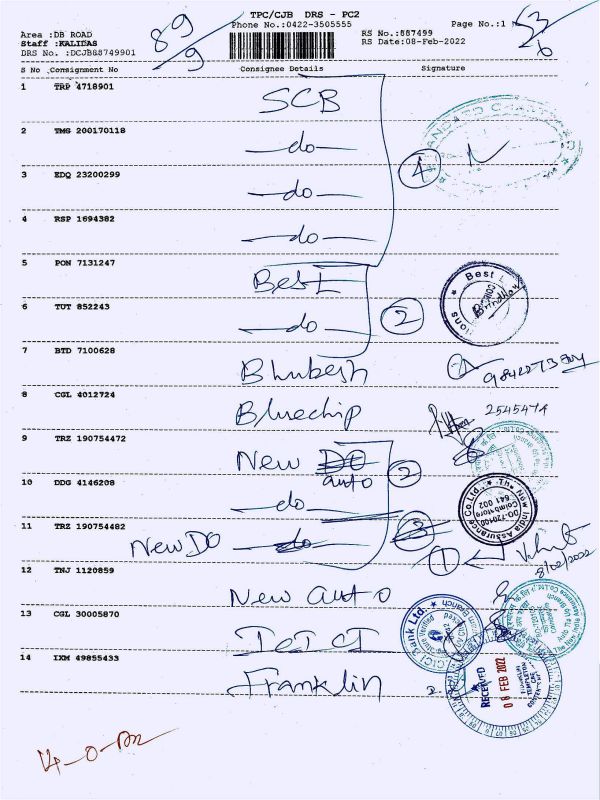 TPC/CJB DRS - PC2
Phone No.:0422-3505555
Page No.:1
Area :DB ROAD
Staff :KALIDAS
DRS No. :DCJB88749901
RS No.:887499
RS Date:08-Feb-2022
89/9
53/6
S No Consignment No Consignee Details Signature
1 TRP 4718901 SCB
2 TMG 200170118 —do—
3 EDQ 23200299 —do—
4 RSP 1694382 —do—
4
5 PON 7131247 Best
6 TUT 852243 —do—
2
Best
7 BTD 7100628 Bhubesh
8 CGL 4012724 Bluechip 2545474
9 TRZ 190754472 New DO auto 2
10 DDG 4146208 —do—
The New India Assurance Co.Ltd.,
Coimbatore
641 002
11 TRZ 190754482 New DO do 3
1
8/02/2022
12 TNJ 1120859 New auto
13 CGL 30005870 ICICI
ICICI Bank Ltd.
14 IXM 49855433 Franklin
RECEIVED
08 FEB 2022